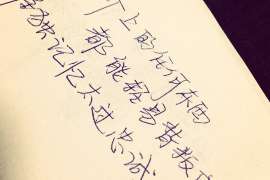 上的任何东西
都能轻易背叛
独记忆太过忠诚